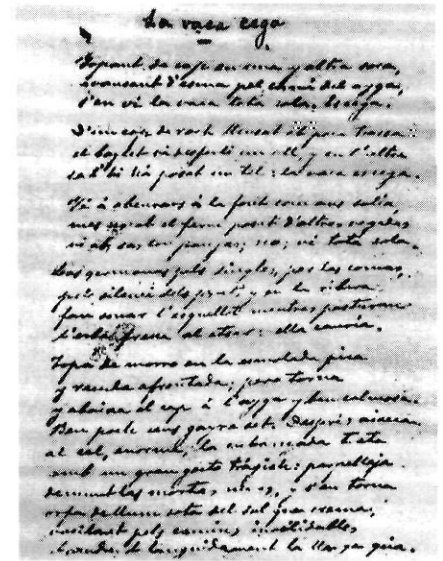 La vaca cega
Topant de cap en una y altra soca,
avansant d'esma pel camí del aygua,
s'en vé la vaca tota sola. Es cega.
D'un cop de roch llensat ab prou trassa
el baylet va un ull, y en l'altre
se li ha posat un tel: la vaca es cega.
Vé á abeurars á la font com ans solia,
mes no ab el ferm posat d'altres vegadas
ni ab sas companyas, no; vé tota sola.
Sas germanas pels singles, per las comas,
pel silenci dels prats, y en la ribera
fan sonar l'esquellot mentres pasturan
l'erba fresca al atzar: ella cauria.
Topa de morro en la esmolada pica
y recula afrontada; pero torna
y abaixa el cap á l'aygua y beu calmosa.
Beu poch sens gayre set. Després aixeca
al cel, enorme, la embanyada testa
amb un gran gesto trágich; parpelleja
demunt las mortas ninas, y s'en torna
orfa de llum sota del sol que crema,
vacilant pels camins inolvidables,
brandant llanguidament la llarga cua.